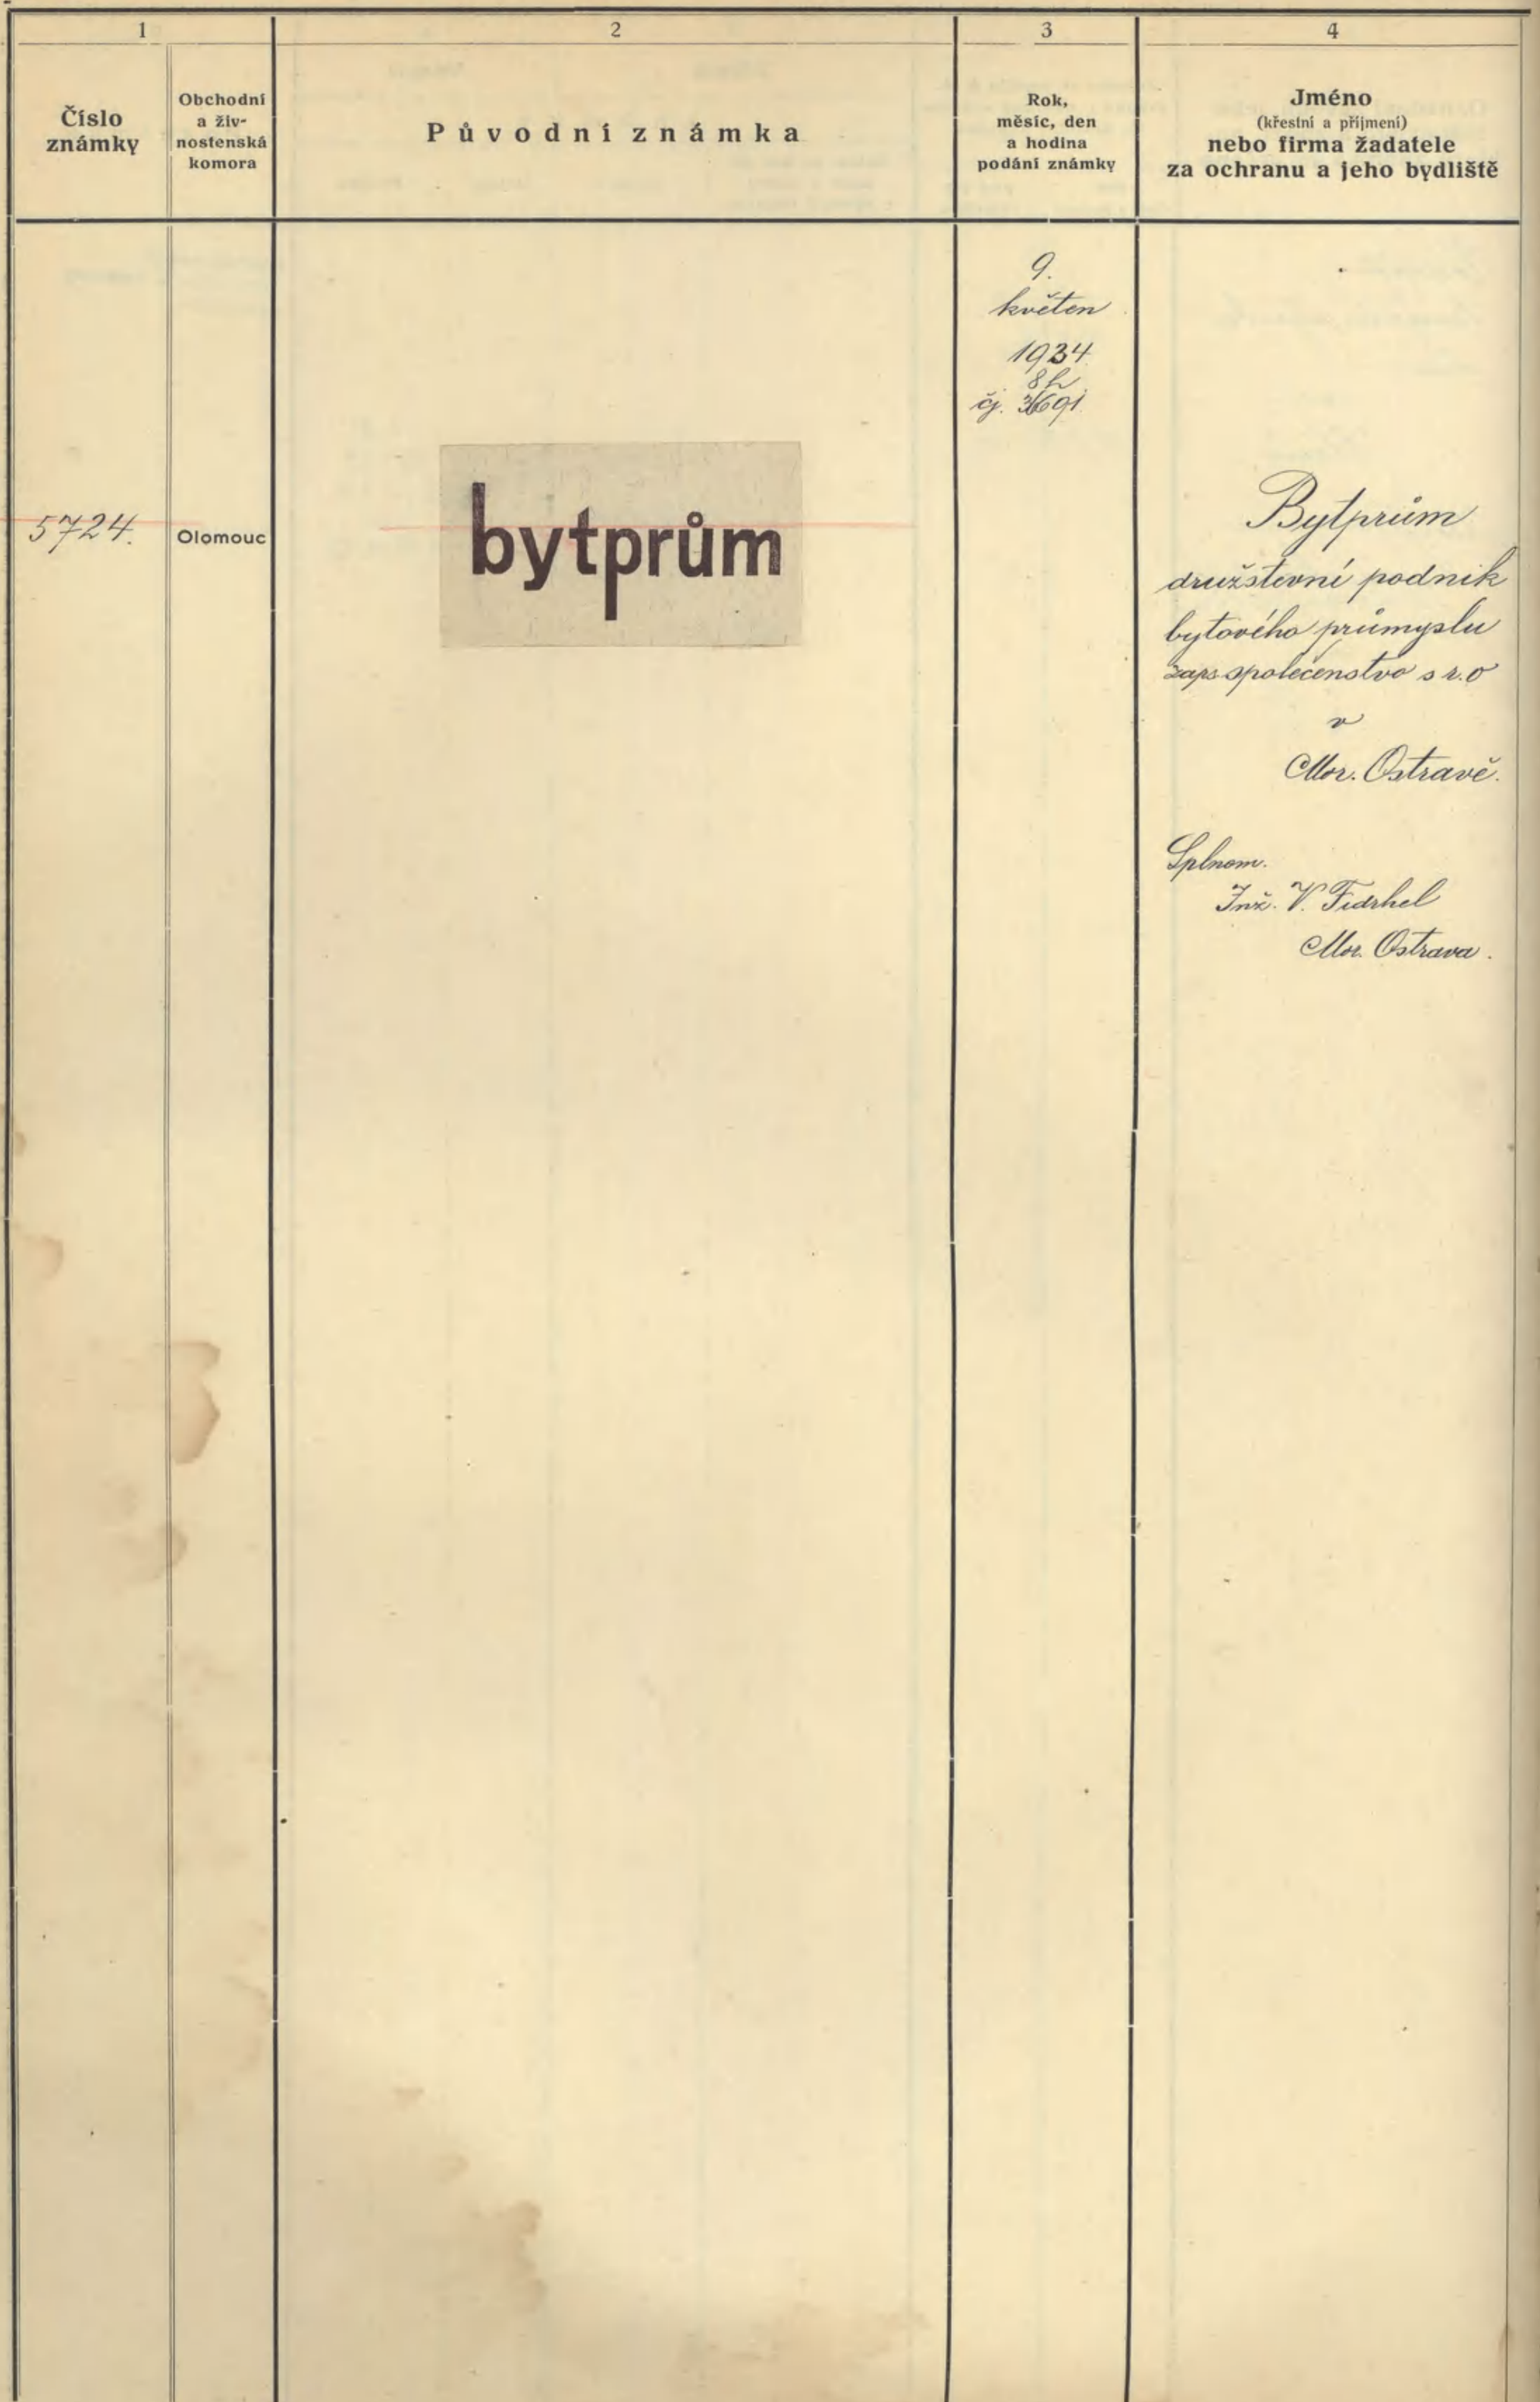 1
2
3
4
Číslo
známky
Obchodní
a živ-
nostenská
komora
Původní známka
Rok,
měsíc, den
a hodina
podání známky
Jméno
(křestní a příjmení)
nebo firma žadatele
za ochranu a jeho bydliště
5724.
Olomouc
bytprům
9.
květen
1934
8 h
čj.
Bytprům
družstevní podnik
bytového průmyslu
zaps. společenstvo s r. o
v
Mor. Ostravě.
Splnom.
Inž. V. Fidrhel
Mor. Ostrava.